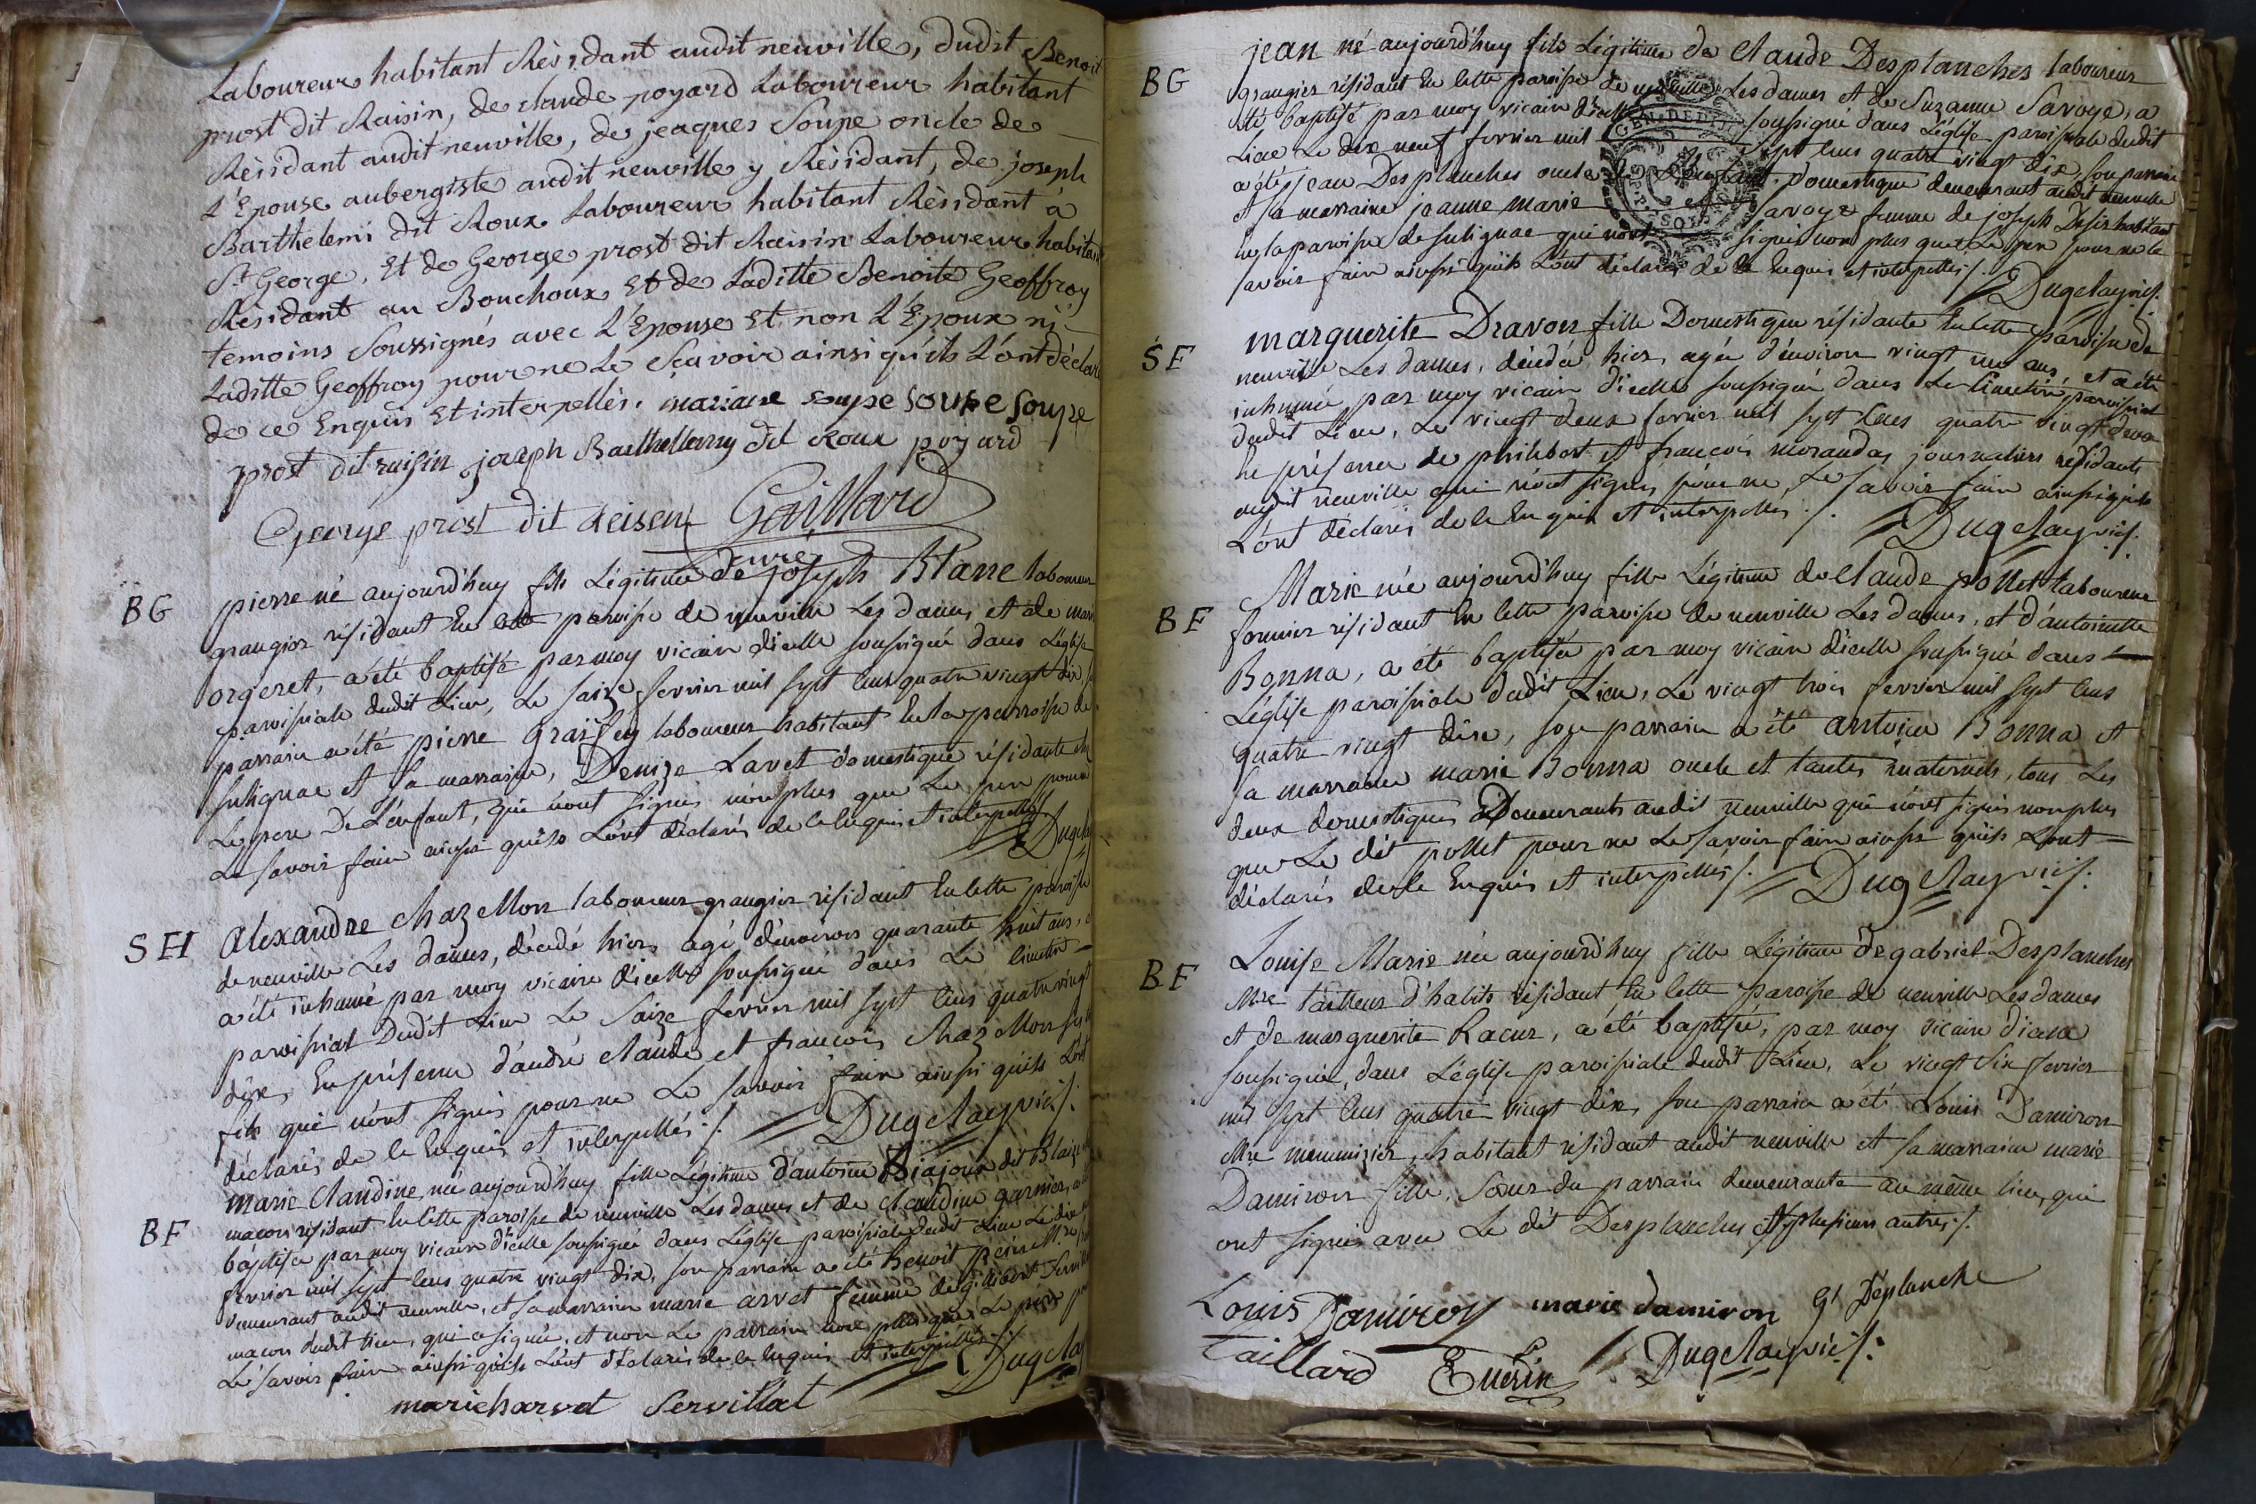 Laboureur habitant Résidant audit neuville, dudit Benoit
prost dit Raisin, de claude poyard Laboureur habitant
Résidant audit neuville, de jeaques Soupe oncle de
L'Epouse aubergiste audit neuville y Résidant, de joseph
Barthelemi dit Roux Laboureur habitant Résidant à
St George, Et de George prost dit Raisin Laboureur habitant
Résidant au Bouchoux Et de Laditte Benoite Geoffroy
temoins Soussignés avec L'Epouse Et non L'Epoux ni
Laditte Geoffroy pour ne Le Scavoir ainsi qu'ils L'ont déclaré
de ce Enquis Et interpellés. mariane soupe soupe soupe
prost dit raisin joseph Barthellemy dit Roux poyard
George prost dit Reisen Gaillard
curé
BG
pierre né aujourd'huy fils Légitime de joseph Blanc laboureur
grangier résidant en cette paroisse de neuville Les dames et de marie
orgeret, a été baptisé par moy vicaire d'icelle soussigné dans L'église
paroissiale dudit Lieu, Le saize fevrier mil sept cens quatre vingt dix,
parrain a été pierre laboureur habitant en la parroisse de
sulignac et sa marraine, Denize Lavet domestique résidante
Le pere De L'enfant, qui n'ont signés non plus que Le pere pour ne
Le savoir faire ainsi qu'ils L'ont déclarés de ce enquis et interpellés
Dugcla
SH
Alexandre chazellon laboureur grangier résidant en cette paroisse
de neuville Les dames, décédé hier, agé d'environ quarante huit ans,
a été inhumé par moy vicaire d'icelle soussigné dans Le cimetiere
paroissial Dudit Lieu Le Saize fevrier mil sept cens quatre vingt
dix, En présence d'andré claude et françois Chazellon
fils qui n'ont signés pour ne Le savoir faire ainsi qu'ils L'ont
déclarés de ce enquis et interpellés ./. Dugclas vic./.
BF
marie Claudine née aujourd'huy fille Légitime d'antoine dit Blaize
maçon résidant en cette paroisse de neuville Les dames et de claudine garnier,
baptisée par moy vicaire d'icelle soussigné dans L'église paroissiale dudit Lieu Le dix
fevrier mil sept cens quatre vingt dix, son parrain a été benoit
demeurant audit neuville, et sa marraine marie arvet femme de
maçon dudit lieu, qui a signée, et non Le parrain non plus que Le pere
Le savoir faire ainsi qu'ils L'ont déclarés de ce enquis et interpellés ./. Dugcla
marie harvet Servillat
BG
jean né aujourd'huy fils Légitime de Claude Desplanches laboureur
grangier résidant En cette paroisse de neuville Les dames et de Suzanne Savoye, a
été baptisé par moy vicaire d'icelle soussigné dans L'église paroissiale dudit
Lieu Le dix neuf fevrier mil sept cens quatre vingt dix, son parrain
a été jean Desplanches oncle de L'enfant domestique demeurant audit neuville
et sa marraine jeanne marie Savoye femme de joseph habitant
en la paroisse de sulignac qui n'ont signés non plus que Le pere pour ne le
savoir faire ainsi qu'ils L'ont déclarés de ce Enquis et interpellés ./.
Dugclas vic./.
SF
marguerite Dravon fille Domestique résidante En cette paroisse de
neuville Les dames, décédée hier, agée d'environ vingt un ans, et a été
inhumée par moy vicaire d'icelle soussigné dans Le cimetiere paroissial
dudit Lieu, Le vingt deux fevrier mil sept cens quatre vingt dix
En présence de philibert et françois morandas journaliers résidants
audit neuville qui n'ont signés pour ne Le savoir faire ainsi qu'ils
L'ont déclarés de ce Enquis et interpellés ./. Dugclas vic./.
BF
Marie née aujourd'huy fille Légitime de Claude pollet laboureur
fermier résidant En cette paroisse de neuville Les dames, et d'antoinette
Bonna, a été baptisée par moy vicaire d'icelle soussigné dans
L'église paroissiale dudit Lieu, Le vingt trois fevrier mil sept cens
quatre vingt dix, son parrain a été antoine Bonna et
sa marraine marie Bonna oncle et tante maternels, tous Les
deux domestiques Demeurants audit neuville qui n'ont signés non plus
que Le dit pollet pour ne Le savoir faire ainsi qu'ils L'ont
déclarés de ce Enquis et interpellés ./. Dugclas vic./.
BF
Louise Marie née aujourd'huy fille Légitime de gabriel Desplanches
Mre tailleur d'habits résidant En cette paroisse de neuville Les dames
et de marguerite Racur, a été baptisée, par moy vicaire d'icelle
soussigné, dans L'église paroissiale dudit Lieu, Le vingt six fevrier
mil sept cens quatre vingt dix, son parrain a été Louis Damiron
Mre menuisier, habitant résidant audit neuville et sa marraine marie
Damiron fille, Sœur du parrain demeurante au même lieu, qui
ont signés avec Le dit Desplanches et plusieurs autres ./.
Louis Damiron marie damiron G! Déplanche
Taillard Guérin Dugclas vic./.